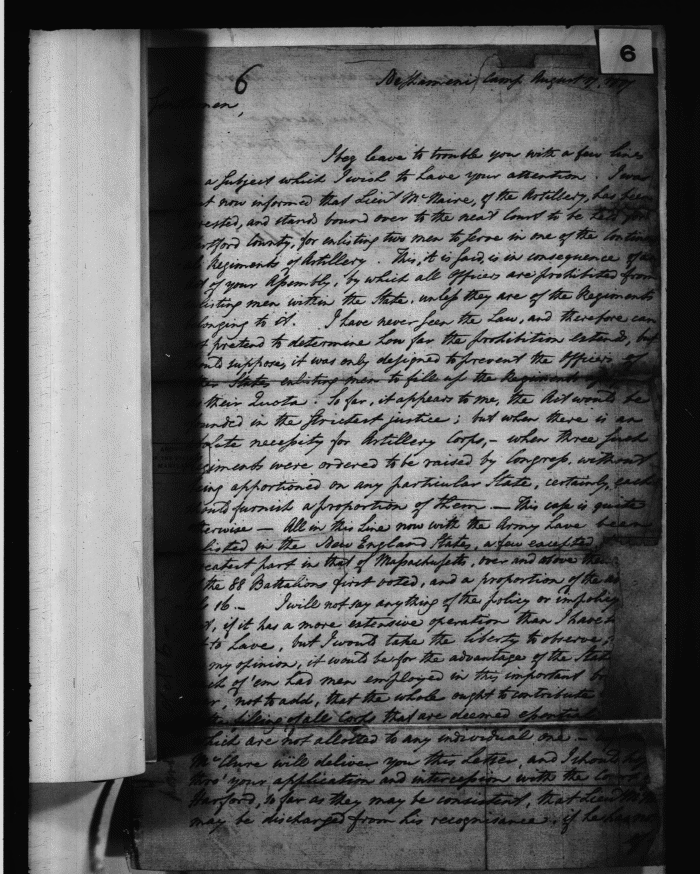 6
6
Camp August 17, 1777
Gentlemen,
I beg leave to trouble you with a few lines
a subject which I wish to have your attention. I was
now informed that Lieut McNaire, of the Artillery, has been
rested, and stands bound over to the next Court to be held for
artford County, for enlisting two men to serve in one of the Continen
Regiments of Artillery. This, it is said, is in consequence of an
of your Assembly, by which all Officers are prohibited from
listing men within the State, unless they are of the Regiments
longing to it. I have never seen the Law, and therefore can
pretend to determine how far the prohibition extends, but
suppose, it was only designed to prevent the Officers of
States enlisting men to fill up the Regiments
their Quota. So far, it appears to me, the Act would be
ounded in the strictest justice; but when there is an
solute necessity for Artillery Corps, – when three such
giments were ordered to be raised by Congress, without
ing apportioned on any particular State, certainly, each
ould furnish a proportion of them — This case is quite
herwise — All in this Line now with the Army have been
listed in the New England States, a few excepted
eatest part in that of Massachusetts, over and above the
the 88 Battalions first voted, and a proportion of the
16 – I will not say anything of the policy or impolicy
if it has a more extensive operation than I have
to have, but I would take the liberty to observe,
my opinion, it would be for the advantage of the State
ch of 'em had men employed in this important
not to add, that the whole ought to contribute
filling of all Corps that are deemed essential
hich are not allotted to any individual one –
McClure will deliver you this Letter, and I should
thro' your application and intercession with the Court
Harford, so far as they may be consistent, that Lieut
may be discharged from his recognisance, if he has not